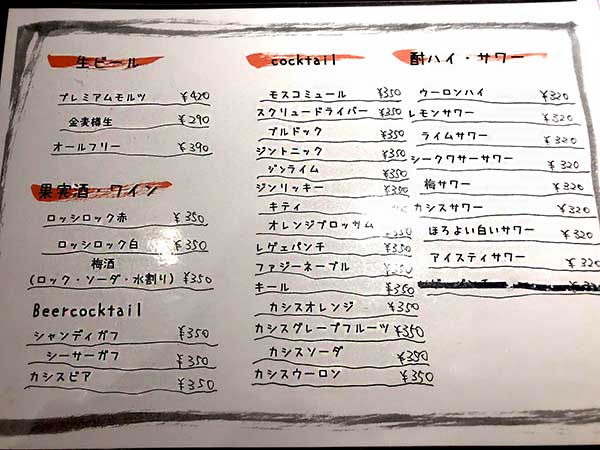 生ビール
プレミアムモルツ ¥420
金麦樽生 ¥290
オールフリー ¥390
果実酒・ワイン
ロッシロック赤 ¥350
ロッシロック白 ¥350
梅酒
(ロック・ソーダ・水割り) ¥350
Beercocktail
シャンディガフ ¥350
シーサーガフ ¥350
カシスビア ¥350
cocktail
モスコミュール ¥350
スクリュードライバー ¥350
ブルドック ¥350
ジントニック ¥350
ジンライム ¥350
ジンリッキー ¥350
キティ
オレンジブロッサム ¥350
レゲエパンチ ¥350
ファジーネーブル ¥350
キール ¥350
カシスオレンジ ¥350
カシスグレープフルーツ ¥350
カシスソーダ ¥350
カシスウーロン ¥350
酎ハイ・サワー
ウーロンハイ ¥320
レモンサワー ¥320
ライムサワー ¥320
シークワサーサワー ¥320
梅サワー ¥320
カシスサワー ¥320
ほろよい白いサワー ¥320
アイスティサワー ¥320